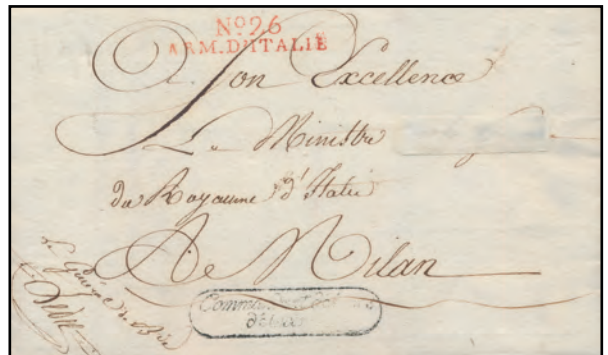 Nº26
ARM.D'ITALIE
A Son Excellence
Le Ministre
du Royaume d'Italie
A Milan
Le Général de